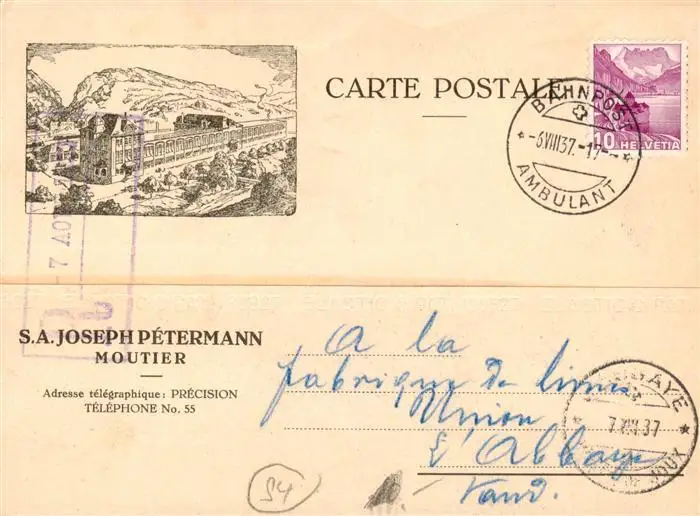 CARTE POSTALE
BAHNPOST
-6.VIII.37.-17-
AMBULANT
10 HELVETIA
-7 AOU
S.A. JOSEPH PÉTERMANN
MOUTIER
Adresse télégraphique : PRÉCISION
TÉLÉPHONE No. 55
A la
fabrique de limes
Union
L'Abbaye
Vaud.
7.VIII.37
JOUX
94